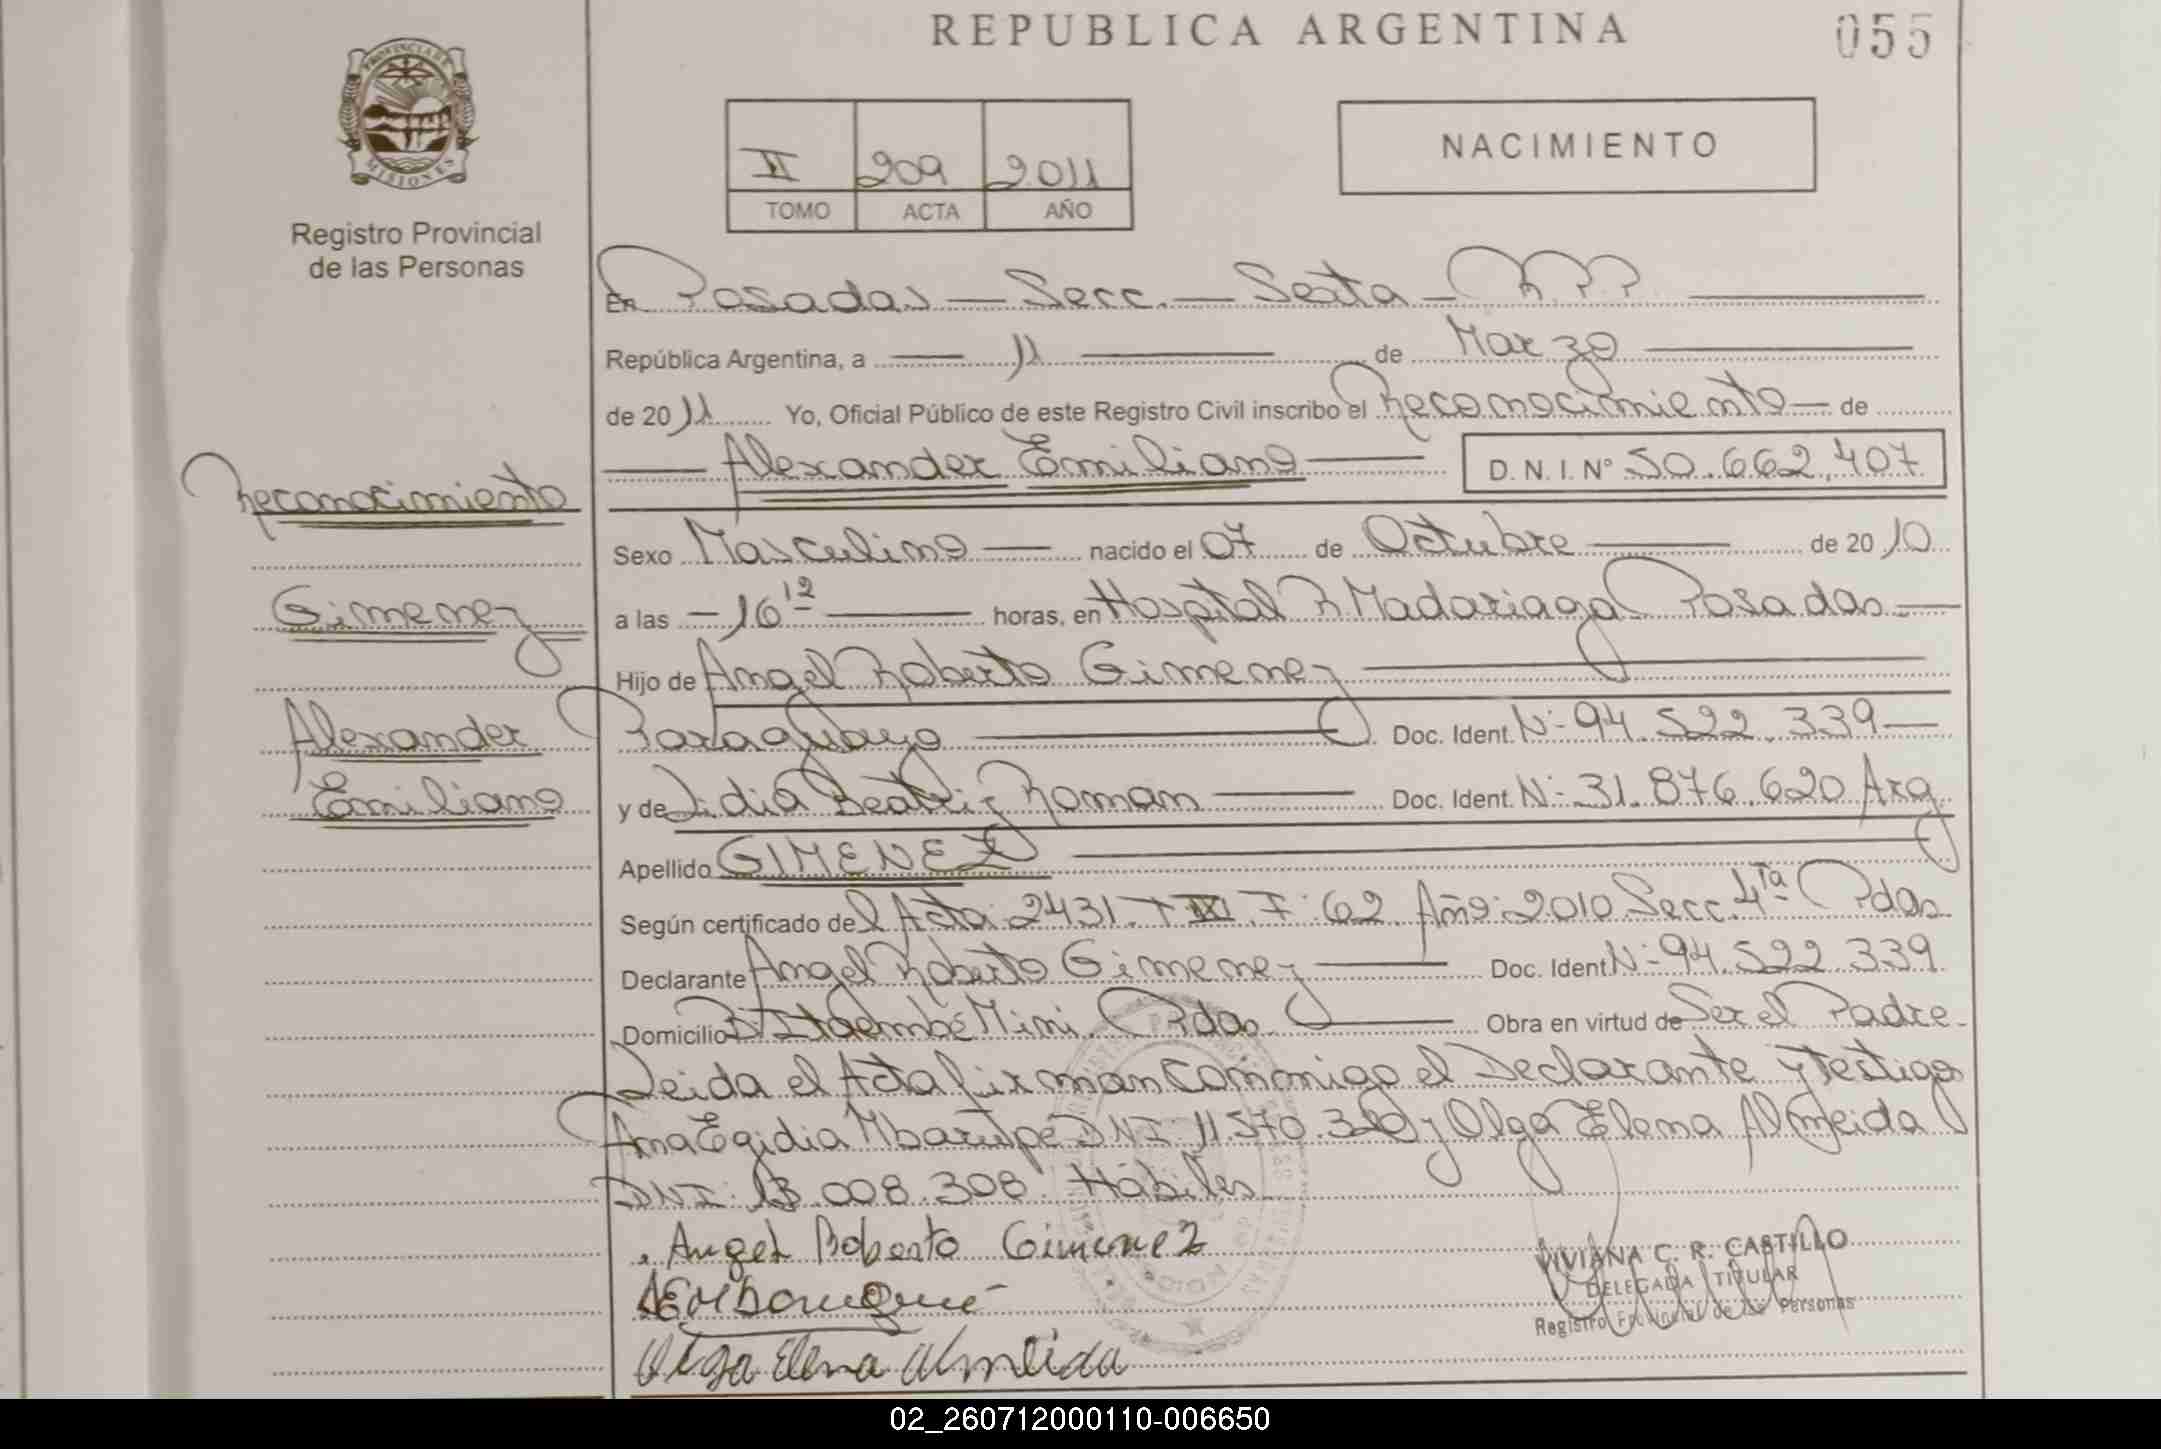 REPUBLICA ARGENTINA
055
PROVINCIA DE
MISIONES
Registro Provincial
de las Personas
II 209 2011
TOMO ACTA AÑO
NACIMIENTO
En Posadas — Secc. — Sexta — R.P.P.
República Argentina, a — 11 — de Marzo
de 2011 Yo, Oficial Público de este Registro Civil inscribo el Reconocimiento — de
— Alexander Emiliano — D. N. I. Nº 50.662.407
Reconocimiento
Gimenez
Alexander
Emiliano
Sexo Masculino — nacido el 07 de Octubre — de 2010
a las — 16 12 — horas, en Hospital R. Madariaga Posadas —
Hijo de Angel Roberto Gimenez —
Paraguayo — Doc. Ident. Nº 94.522.339 —
y de Lidia Beatriz Roman — Doc. Ident. Nº 31.876.620 Arg
Apellido GIMENEZ —
Según certificado del Acta: 2431. T F: 62 Año: 2010 Secc. 4ta Pdas
Declarante Angel Roberto Gimenez — Doc. Ident Nº 94.522.339
Domicilio Bº Itaembé Mini Pdas — Obra en virtud de Ser el Padre
Leida el Acta firman conmigo el Declarante y testigos
Ana Egidia DNI 11.570. y Olga Elena Almeida
DNI: 13.008.308 Hábiles
Angel Roberto Gimenez
Olga Elena Almeida
VIVIANA C. R. CASTILLO
DELEGADA TITULAR
Registro Provincial de las Personas
02_260712000110-006650